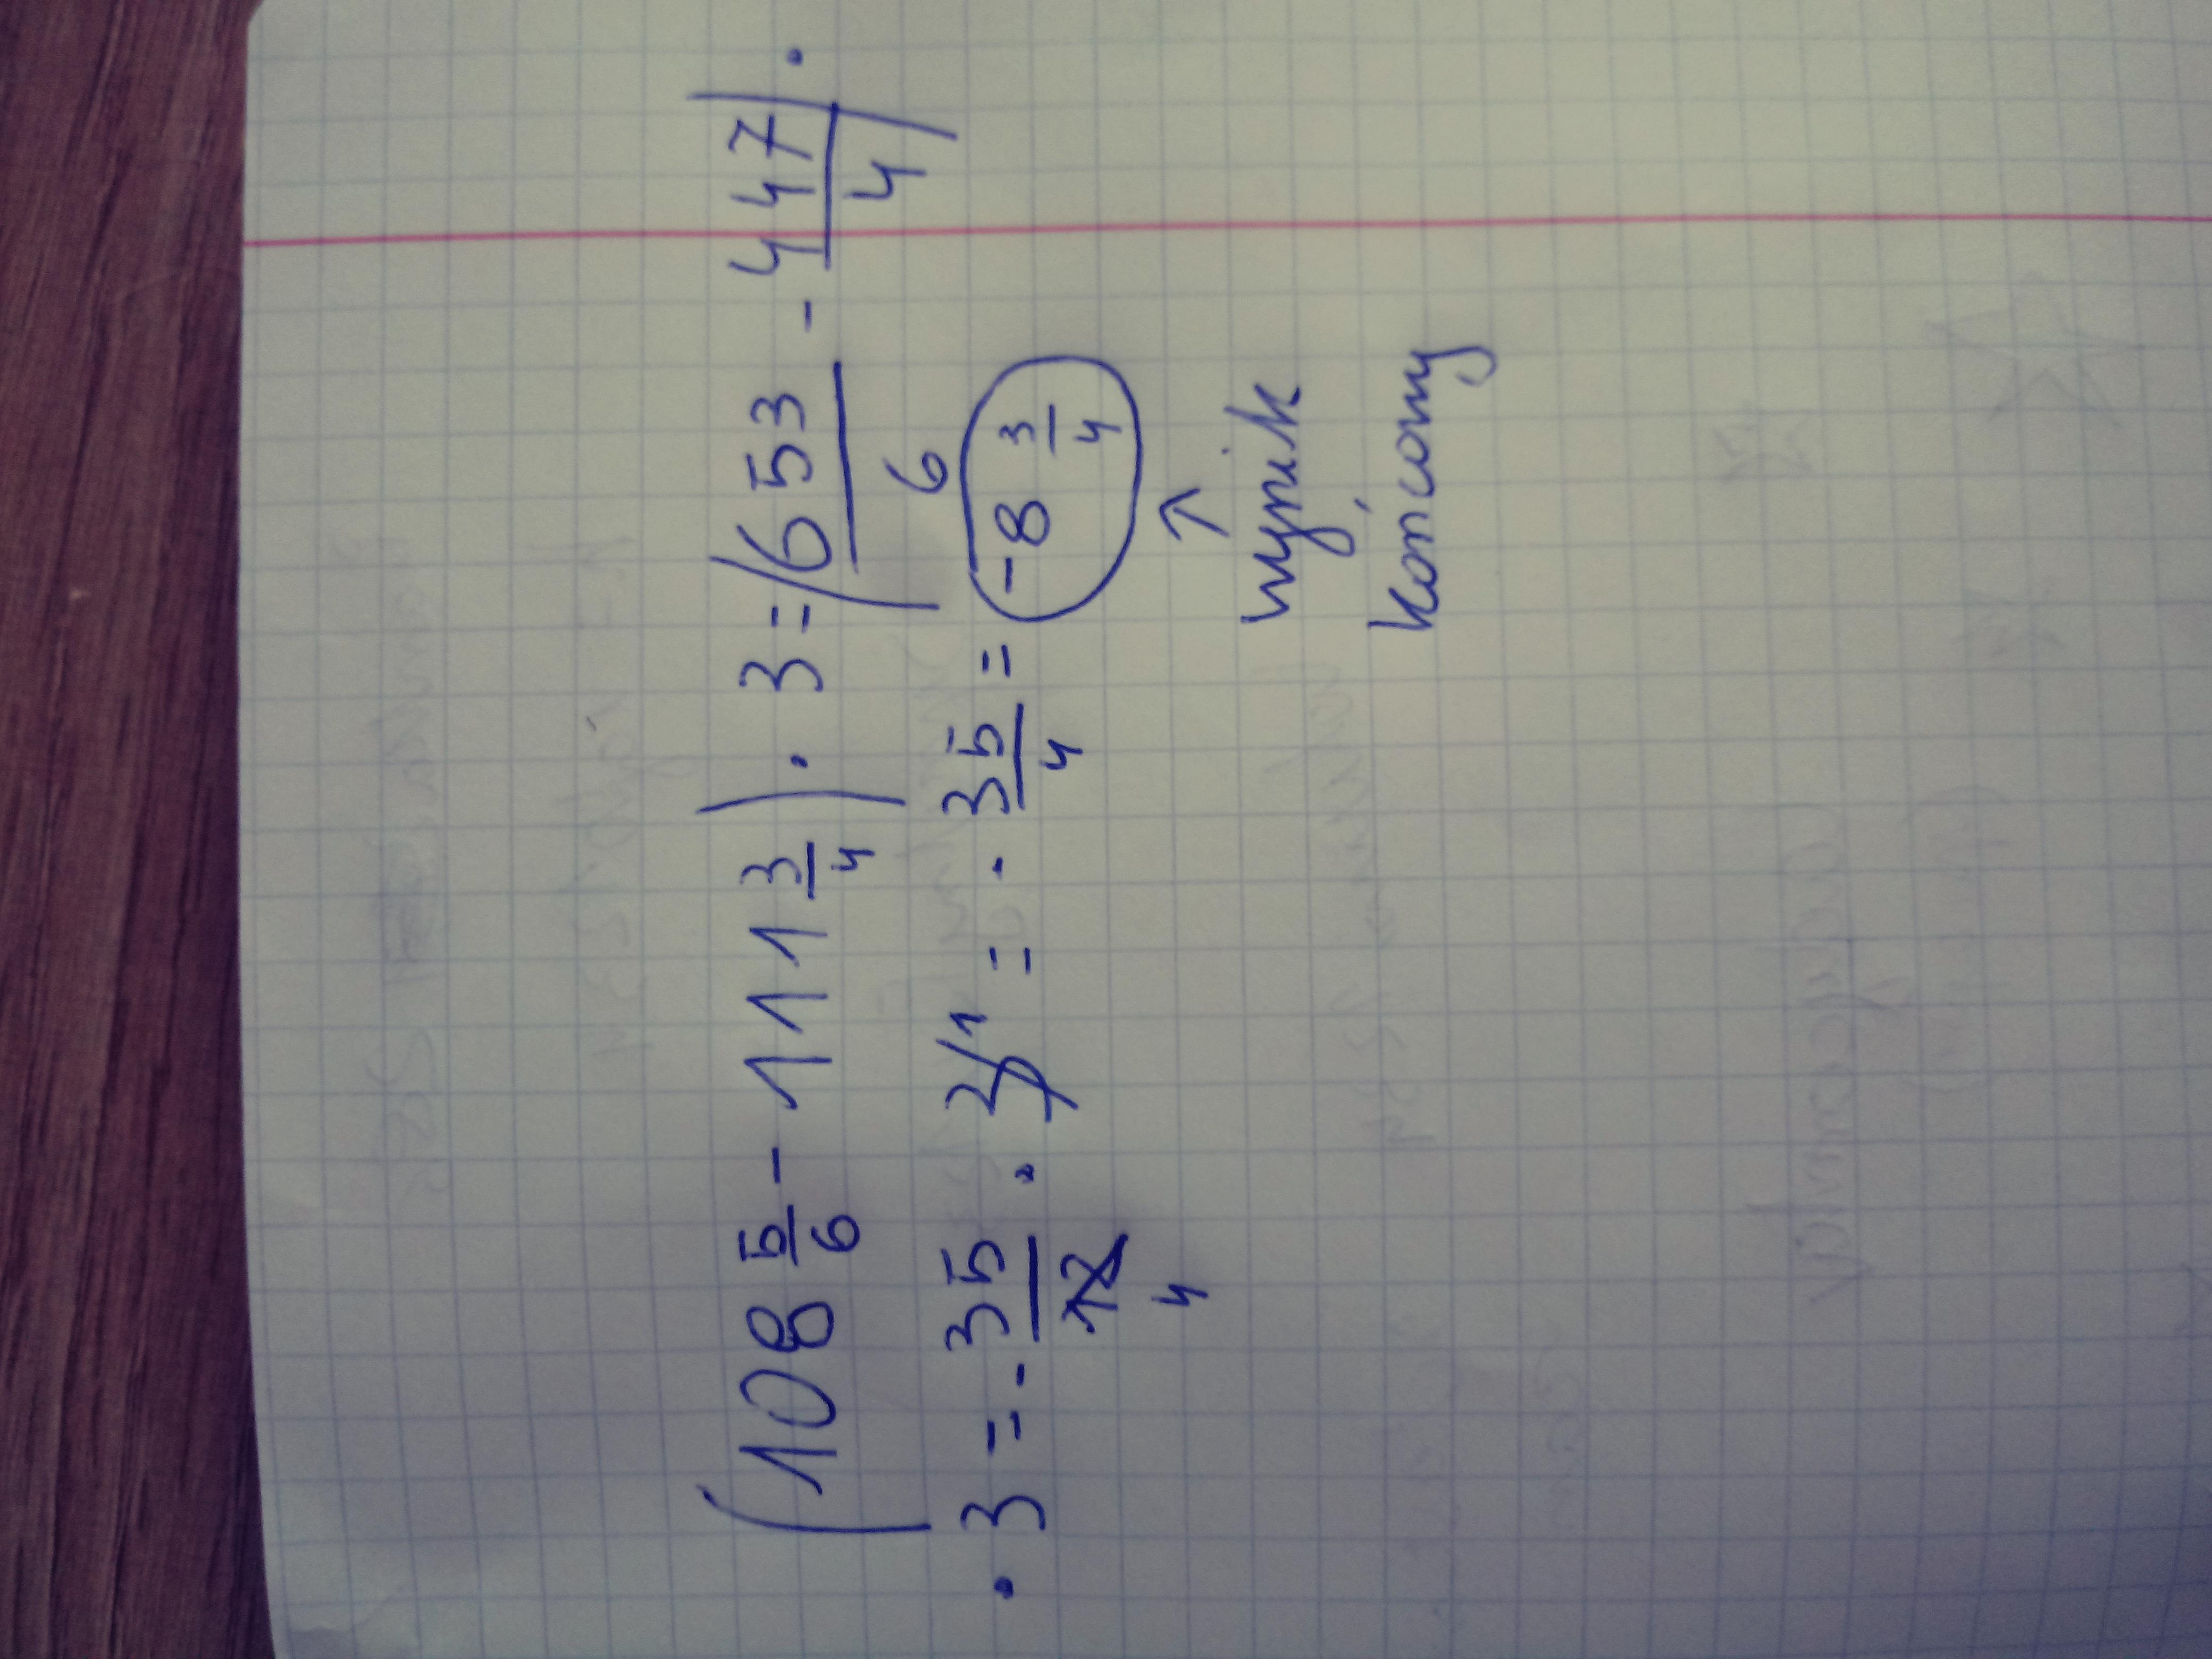 (108 5/6 - 111 3/4) · 3 = (653/6 - 447/4) ·
· 3 = - 35/12 4 · 3 1 = · 35/4 = -8 3/4
↑
wynik
końcowy